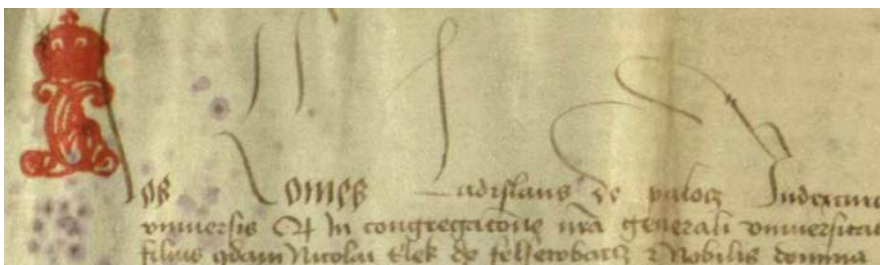 Nos Comes Ladislaus de paloch Judex curie
vniuersis Q in congregacone nra generali vniuersita
filius qdam Nicolai Elek de felserobach 2 Nobilis domina